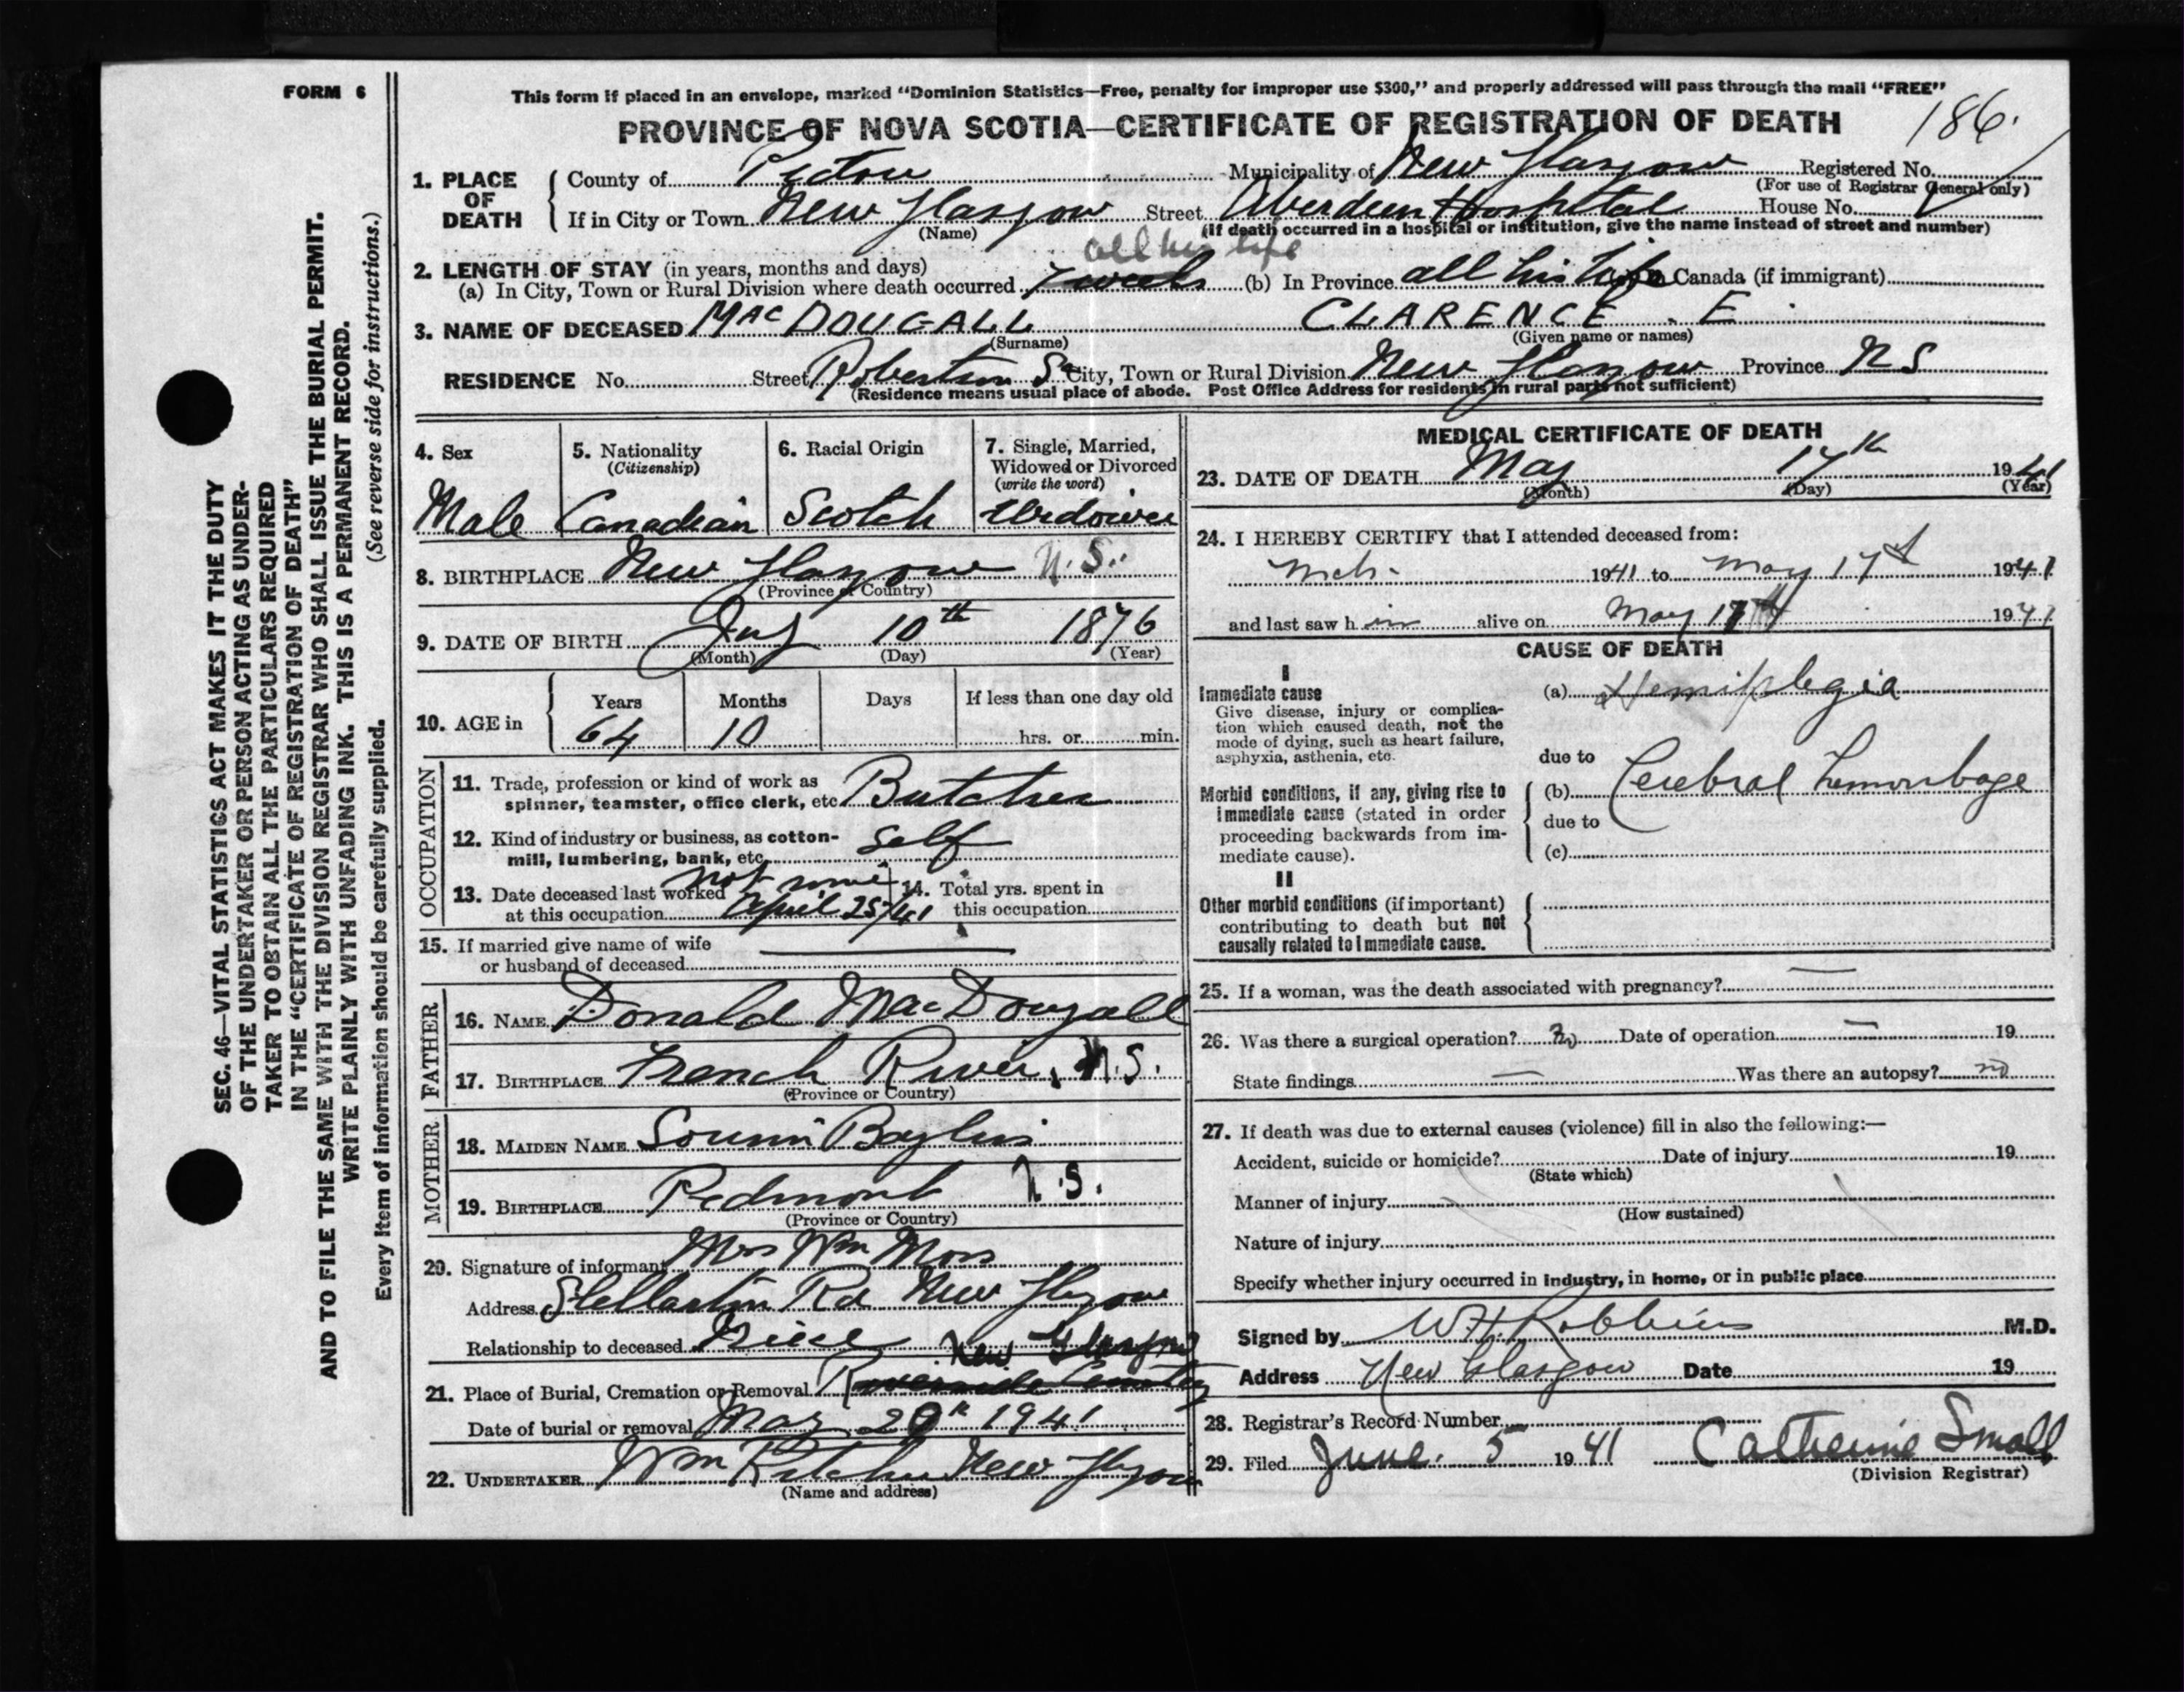 FORM 6
This form if placed in an envelope, marked "Dominion Statistics—Free, penalty for improper use $300," and properly addressed will pass through the mail "FREE"
PROVINCE OF NOVA SCOTIA—CERTIFICATE OF REGISTRATION OF DEATH
186.
1. PLACE OF DEATH County of Pictou Municipality of New Glasgow Registered No.
(For use of Registrar General only)
If in City or Town New Glasgow Street Aberdeen Hospital House No.
(Name) (If death occurred in a hospital or institution, give the name instead of street and number)
all his life
2. LENGTH OF STAY (in years, months and days)
(a) In City, Town or Rural Division where death occurred weeks (b) In Province all his life Canada (if immigrant)
3. NAME OF DECEASED MacDOUGALL CLARENCE E
(Surname) (Given name or names)
RESIDENCE No. Street Robertson St City, Town or Rural Division New Glasgow Province N S
(Residence means usual place of abode. Post Office Address for residents in rural parts not sufficient)
4. Sex 5. Nationality (Citizenship) 6. Racial Origin 7. Single, Married, Widowed or Divorced (write the word)
Male Canadian Scotch Widower
8. BIRTHPLACE New Glasgow N.S.
(Province or Country)
9. DATE OF BIRTH 10th 1876
(Month) (Day) (Year)
10. AGE in Years Months Days If less than one day old
64 10 hrs. or min.
OCCUPATION
11. Trade, profession or kind of work as
spinner, teamster, office clerk, etc. Butcher
12. Kind of industry or business, as cotton-
mill, lumbering, bank, etc. Self
13. Date deceased last worked not
at this occupation April 25/41
14. Total yrs. spent in
this occupation
15. If married give name of wife
or husband of deceased
FATHER
16. NAME Donald MacDougall
17. BIRTHPLACE French River, N.S.
(Province or Country)
MOTHER
18. MAIDEN NAME
19. BIRTHPLACE Pedmont N.S.
(Province or Country)
20. Signature of informant Mrs Wm
Address Stellarton Rd New Glasgow
Relationship to deceased Niece
New Glasgow
21. Place of Burial, Cremation or Removal Riverside Cemetery
Date of burial or removal May 20th 1941
22. UNDERTAKER Wm New Glasgow
(Name and address)
MEDICAL CERTIFICATE OF DEATH
23. DATE OF DEATH May 17th 1941
(Month) (Day) (Year)
24. I HEREBY CERTIFY that I attended deceased from:
Mch. 1941 to May 17th 1941
and last saw h im alive on May 17th 1941
CAUSE OF DEATH
I
Immediate cause (a) Hemiplegia
Give disease, injury or complica-
tion which caused death, not the
mode of dying, such as heart failure,
asphyxia, asthenia, etc. due to
Morbid conditions, if any, giving rise to (b) Cerebral hemorrhage
immediate cause (stated in order due to
proceeding backwards from im-
mediate cause). (c)
II
Other morbid conditions (if important)
contributing to death but not
causally related to immediate cause.
25. If a woman, was the death associated with pregnancy? —
26. Was there a surgical operation? no Date of operation — 19
State findings — Was there an autopsy? no
27. If death was due to external causes (violence) fill in also the following:—
Accident, suicide or homicide? Date of injury 19
(State which)
Manner of injury
(How sustained)
Nature of injury
Specify whether injury occurred in industry, in home, or in public place
Signed by W H Robbins M.D.
Address New Glasgow Date 19
28. Registrar's Record Number
29. Filed June 5 1941 Catherine Small
(Division Registrar)
SEC. 46—VITAL STATISTICS ACT MAKES IT THE DUTY
OF THE UNDERTAKER OR PERSON ACTING AS UNDER-
TAKER TO OBTAIN ALL THE PARTICULARS REQUIRED
IN THE "CERTIFICATE OF REGISTRATION OF DEATH"
AND TO FILE THE SAME WITH THE DIVISION REGISTRAR WHO SHALL ISSUE THE BURIAL PERMIT.
WRITE PLAINLY WITH UNFADING INK. THIS IS A PERMANENT RECORD.
Every item of information should be carefully supplied. (See reverse side for instructions.)